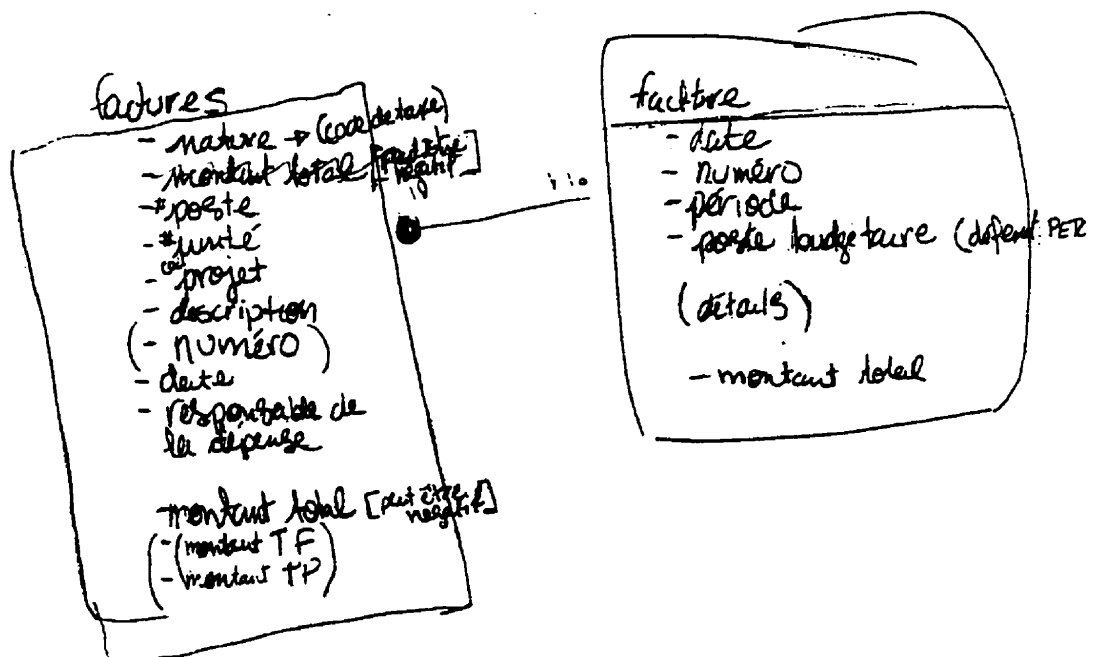 factures
- nature → (code de taxe)
- montant total [peut être négatif]
- # poste
- # unité
- projet
- description
(- numéro)
- date
- responsable de
la dépense
- montant total [peut être négatif]
(- (montant TF
- montant TP)
fackture
- date
- numéro
- période
- poste budgetaire (défaut PER
(détails)
- montant total